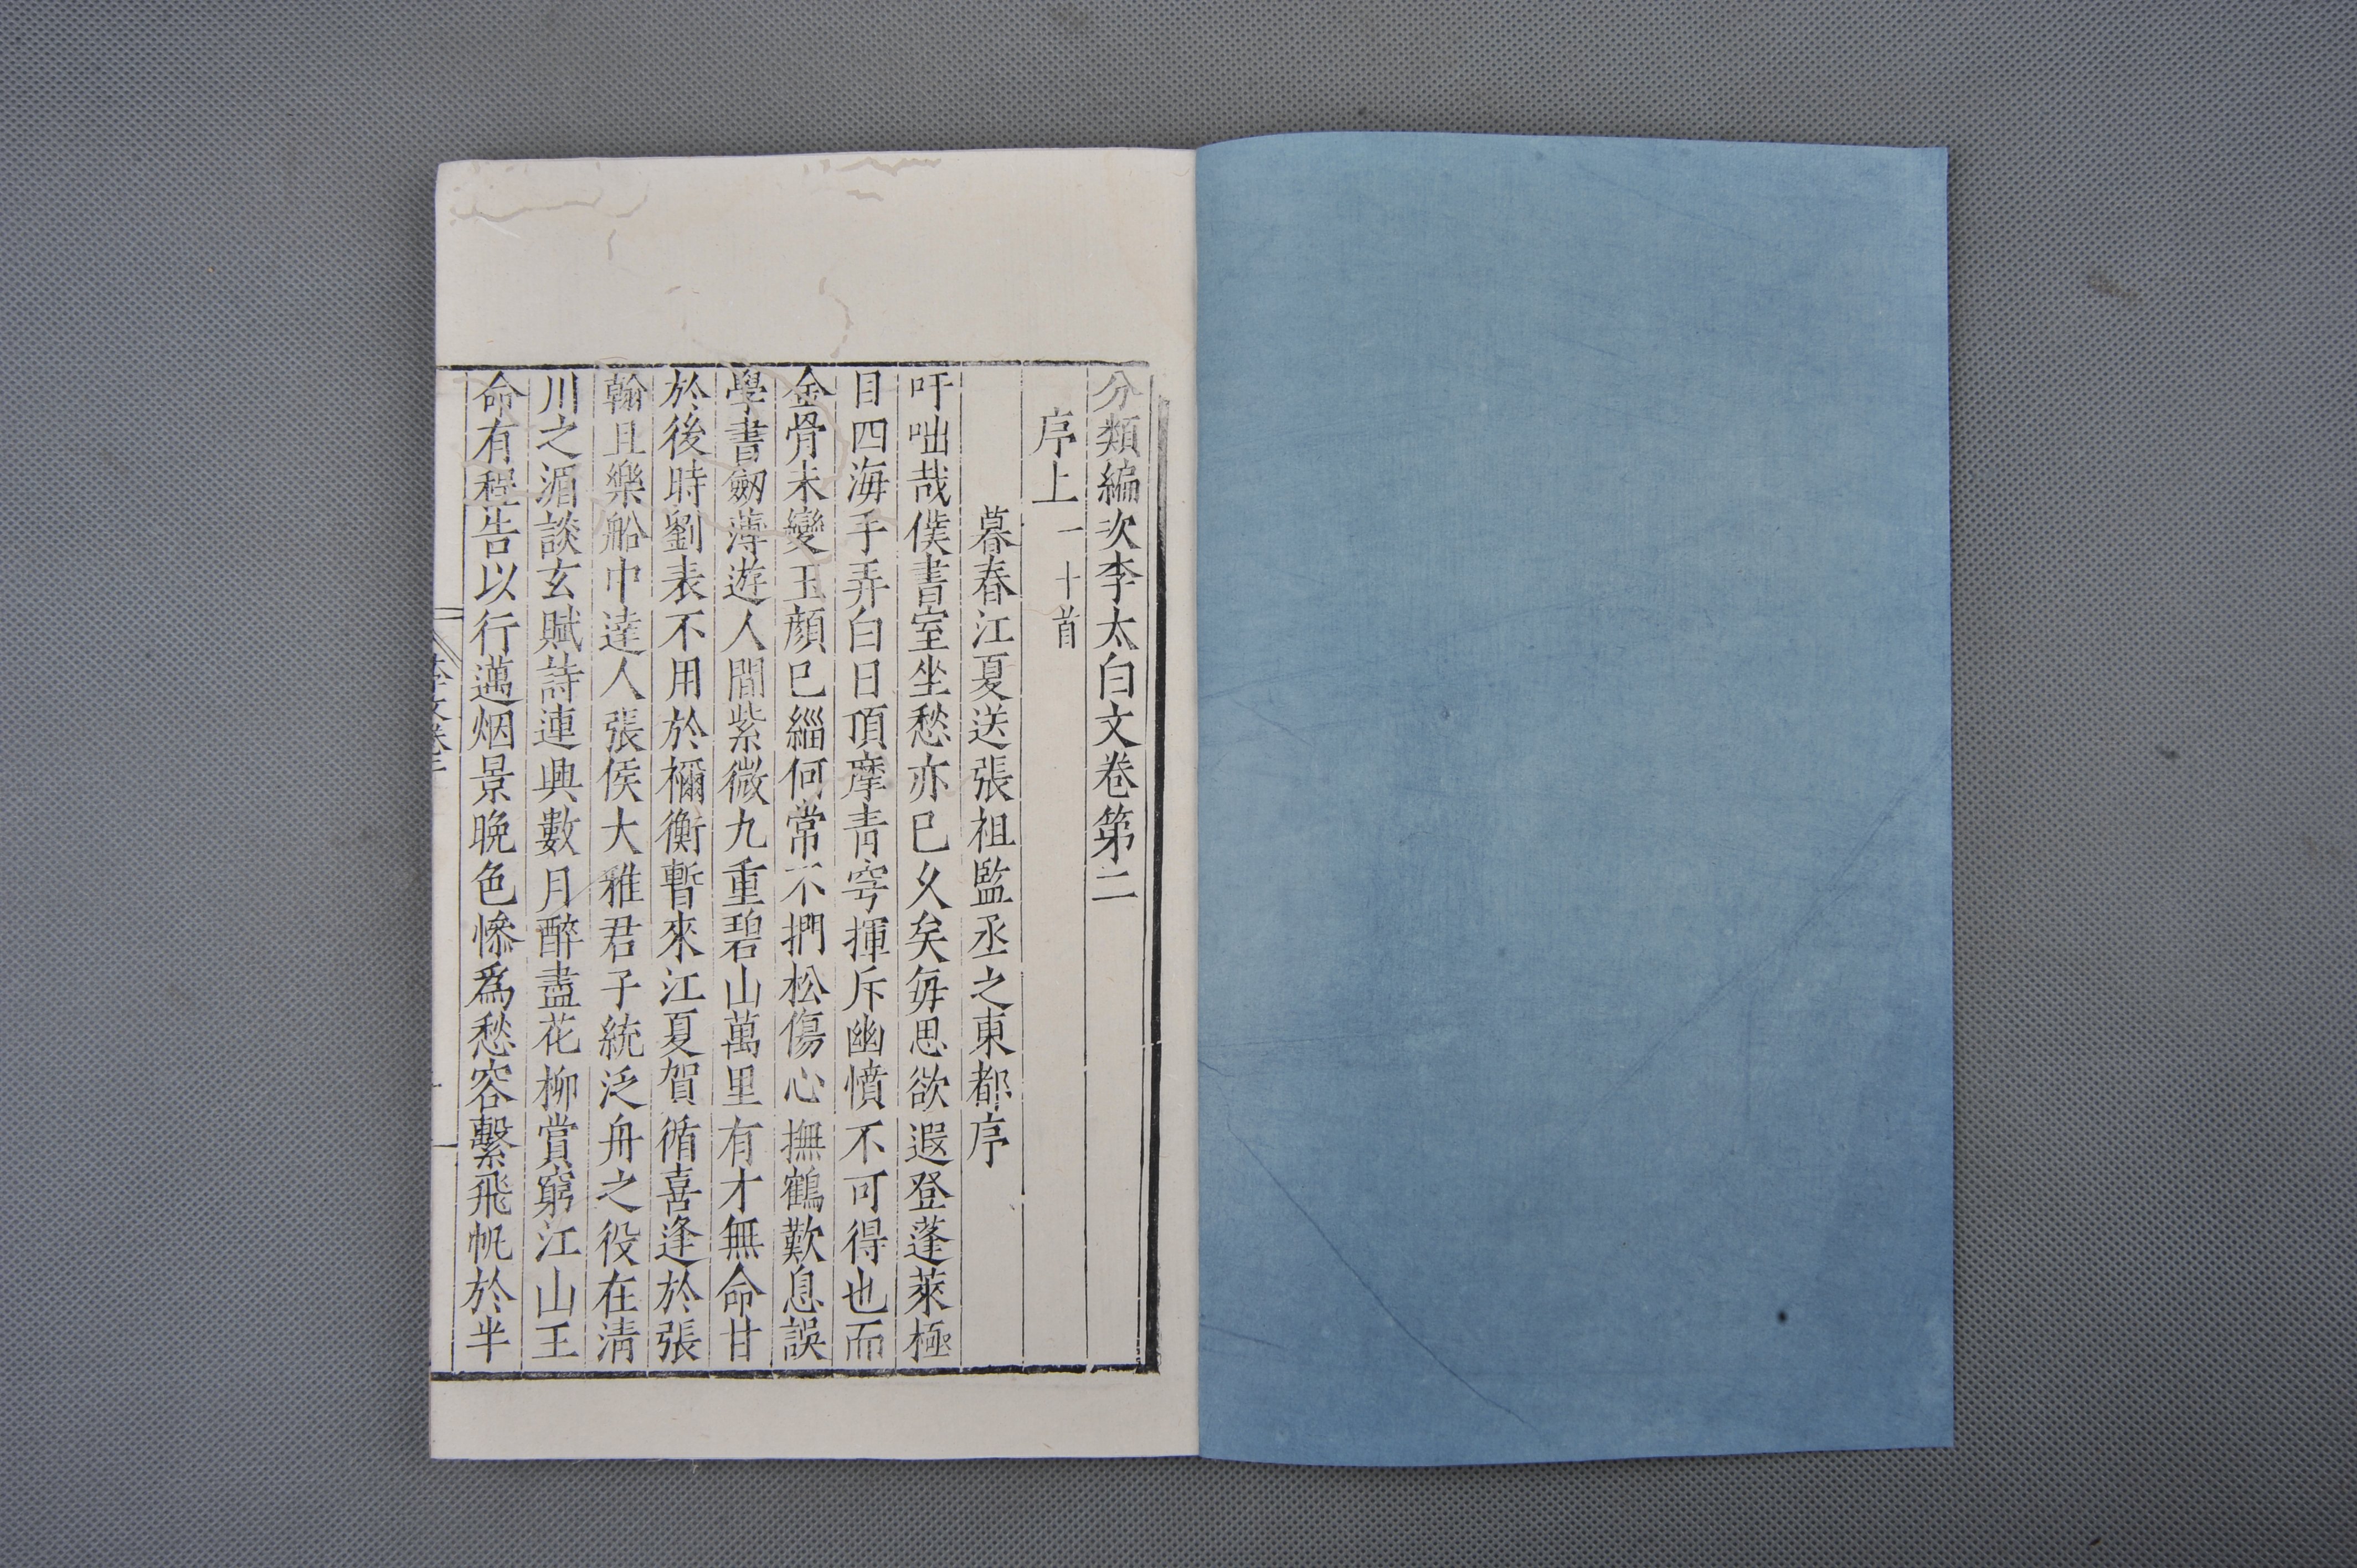 分類編次李太白文卷第二
序上 一十首
暮春江夏送張祖監丞之東都序
吁咄哉僕書室坐愁亦已久矣每思欲遐登蓬萊極
目四海手弄白日頂摩青穹揮斥幽憤不可得也而
金骨未變玉顏已緇何常不捫松傷心撫鶴歎息誤
學書劒薄遊人間紫微九重碧山萬里有才無命甘
於後時劉表不用於禰衡暫來江夏賀循喜逢於張
翰且樂船中達人張侯大雅君子統泛舟之役在清
川之湄談玄賦詩連興數月醉盡花柳賞窮江山王
命有程告以行邁烟景晚色慘爲愁容繫飛帆於半